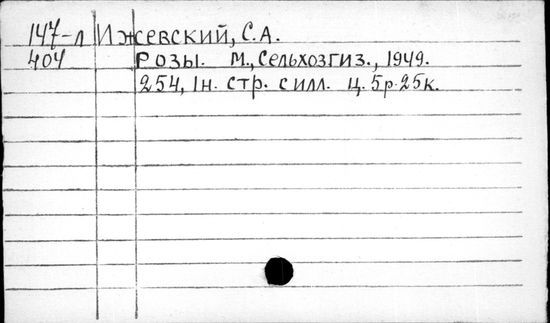 147-л Ижевский, С.А.
404 Розы. М., Сельхозгиз., 1949.
254, 1н. стр. с илл. ц. 5р.25к.